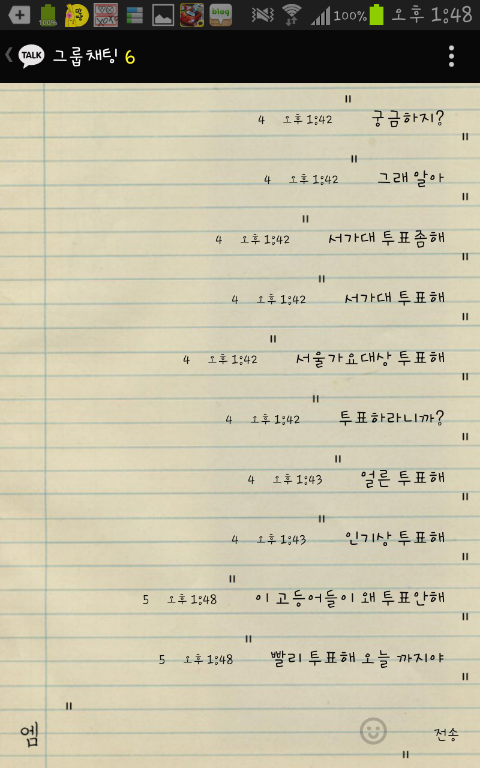 100% blog 100% 오후 1:48
TALK 그룹채팅 6
4 오후 1:42 " 궁금하지? "
4 오후 1:42 " 그래 알아 "
4 오후 1:42 " 서가대 투표좀해 "
4 오후 1:42 " 서가대 투표해 "
4 오후 1:42 " 서울가요대상 투표해 "
4 오후 1:42 " 투표하라니까? "
4 오후 1:43 " 얼른 투표해 "
4 오후 1:43 " 인기상 투표해 "
5 오후 1:48 " 이 고등어들이 왜 투표안해 "
5 오후 1:48 " 빨리 투표해 오늘 까지야 "
엠 " 전송 "